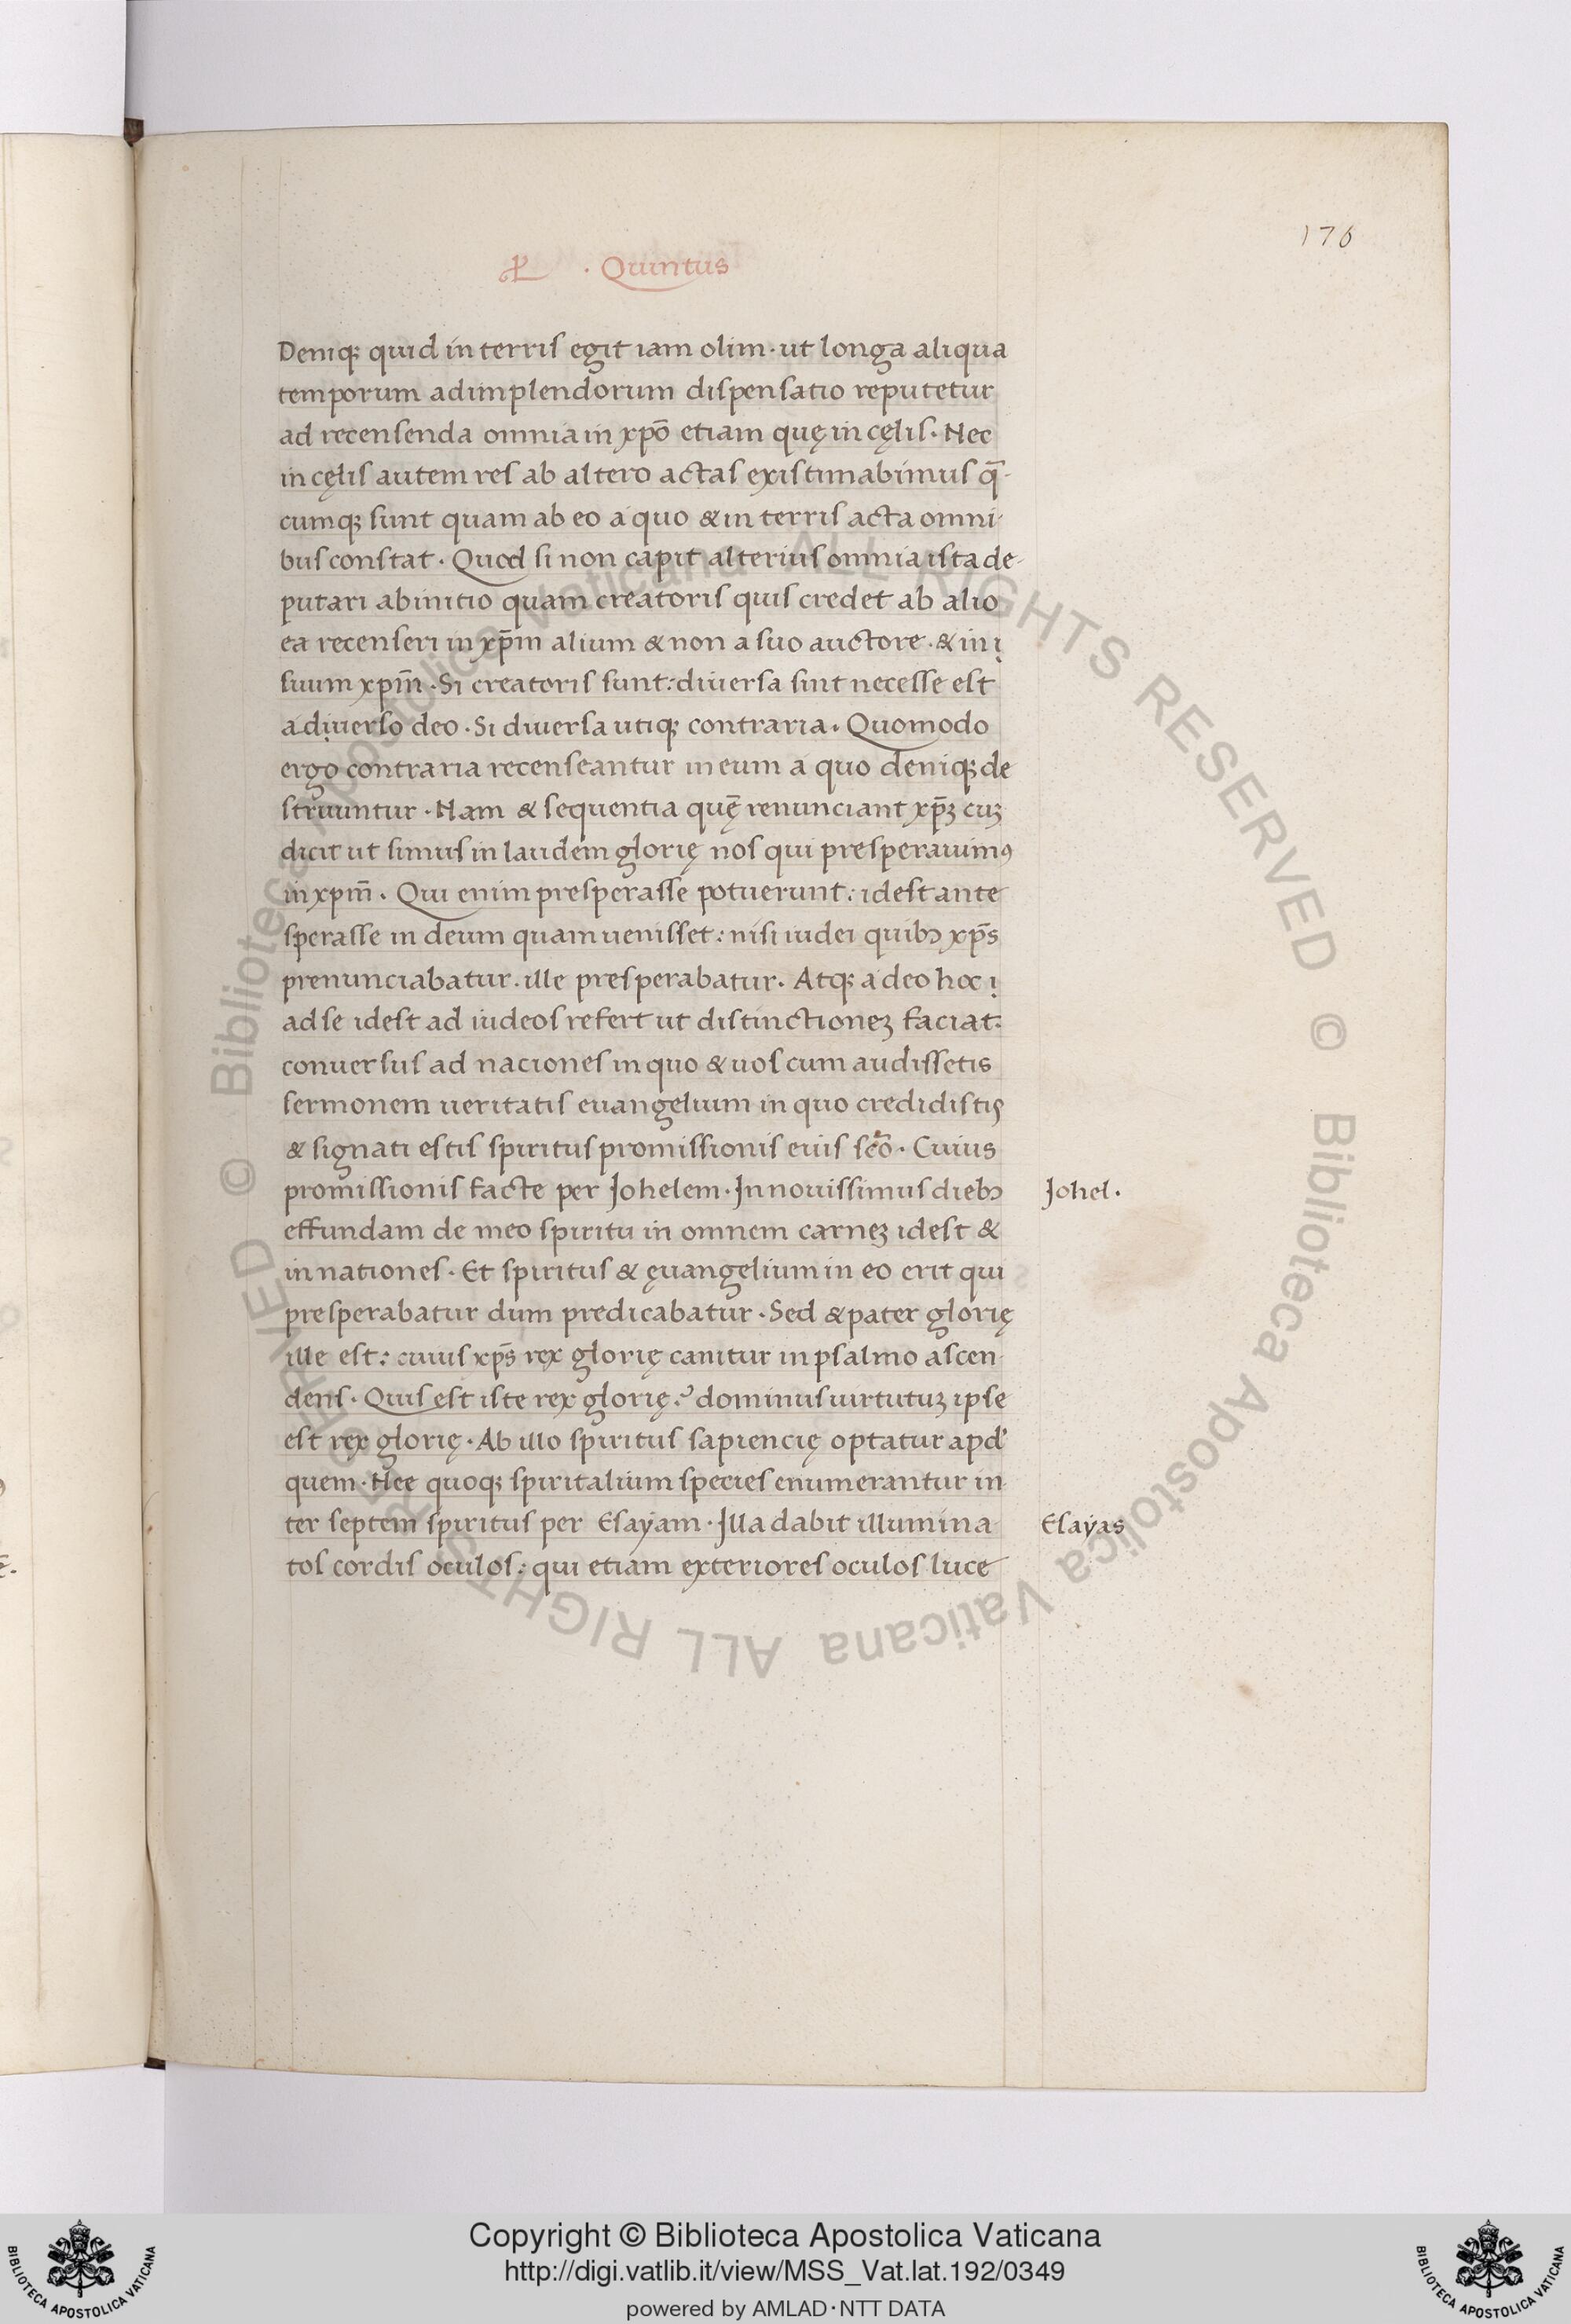 176
· Quintus
Deniqꝫ quid in terris egit iam olim · ut longa aliqua
temporum adimplendorum dispensatio reputetur
ad recensenda omnia in xpō etiam quę in cęlis · Nec
in cęlis autem res ab altero actas existimabimus q̄-
cumqꝫ sunt quam ab eo a quo & in terris acta omni-
bus constat · Quod si non capit alterius omnia ista de-
putari ab initio quam creatoris quis credet ab alio
ea recenseri in xp̄m alium & non a suo auctore · & in
suum xpm̄ · Si creatoris sunt: diversa sint necesse est
a diverso deo · Si diversa utiqꝫ contraria · Quomodo
ergo contraria recenseantur in eum a quo deniqꝫ de
struuntur · Nam & sequentia quę renunciant xp̄ꝫ cuꝫ
dicit ut simus in laudem glorię nos qui presperavimꝰ
in xpm̄ · Qui enim presperasse potuerunt: idest ante
sperasse in deum quam venisset: nisi iudei quibꝫ xp̄s
prenunciabatur · ille presperabatur · Atqꝫ adeo hoc
ad se idest ad iudeos refert ut distinctioneꝫ faciat:
conversus ad naciones in quo & vos cum audissetis
sermonem veritatis evangelium in quo credidistis
& signati estis spiritus promissionis eius scō · Cuius
promissionis facte per Johelem · In novissimus diebꝫ
effundam de meo spiritu in omnem carneꝫ idest &
in nationes · Et spiritus & ęvangelium in eo erit qui
presperabatur dum predicabatur · Sed & pater glorię
ille est: cuius xp̄s rex glorię canitur in psalmo ascen-
dens · Quis est iste rex glorię? dominus virtutuꝫ ipse
est rex glorię · Ab illo spiritus sapiencię optatur apd'
quem · Hee quoqꝫ spiritalium species enumerantur in-
ter septem spiritus per Esaÿam · Illa dabit illumina-
tos cordis oculos: qui etiam exteriores oculos luce
Johel ·
Esaÿas
© Biblioteca Apostolica Vaticana ALL RIGHTS RESERVED © Biblioteca Apostolica Vaticana ALL RIGHTS RESERVED
Copyright © Biblioteca Apostolica Vaticana
http://digi.vatlib.it/view/MSS_Vat.lat.192/0349
powered by AMLAD·NTT DATA
BIBLIOTECA APOSTOLICA VATICANA
BIBLIOTECA APOSTOLICA VATICANA